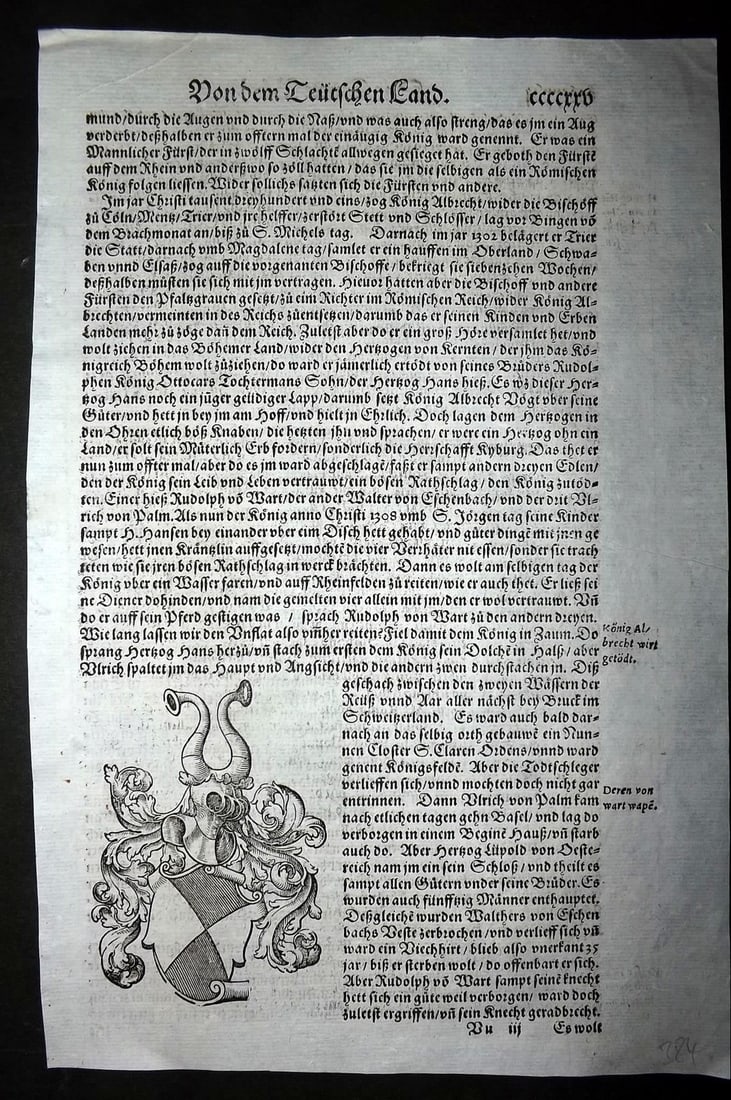 Von dem Teütschen Land. ccccxxv
mund/durch die Augen vnd durch die Naß/vnd was auch also streng/das es jm ein Aug
verderbt/deßhalben er zum offtern mal der einäugig König ward genennt. Er was ein
Mannlicher Fürst/der in zwölff Schlachtẽ allwegen gesieget hat. Er geboth den Fürstẽ
auff dem Rhein vnd anderßwo so zöll hatten/das sie jm die selbigen als ein Römischen
König folgen liessen. Wider sollichs satzten sich die Fürsten vnd andere.
Im jar Christi tausent dreyhundert vnd eins/zog König Albrecht/wider die Bischöff
zů Cöln/Mentz/Trier/vnd jre helffer/zerstört Stett vnd Schlösser/lag vor Bingen võ
dem Brachmonat an/biß zů S. Michels tag. Darnach im jar 1302 belägert er Trier
die Statt/darnach vmb Magdalene tag/samlet er ein hauffen im Oberland/Schwa-
ben vnnd Elsaß/zog auff die vorgenanten Bischoffe/bekriegt sie siebenzehen Wochen/
deßhalben můsten sie sich mit jm vertragen. Hieuor hatten aber die Bischoff vnd andere
Fürsten den Pfaltzgrauen gesetzt/zů eim Richter im Römischen Reich/wider König Al-
brechten/vermeinten in des Reichs zůentsetzen/darumb das er seinen Kinden vnd Erben
Landen mehr zů zöge dañ dem Reich. Zuletst aber do er ein groß Höre versamlet het/vnd
wolt ziehen in das Böhemer Land/wider den Hertzogen von Kernten/der jhm das Kö-
nigreich Böhem wolt zůziehen/do ward er jämerlich ertödt von seines Brůders Rudol-
phen König Ottocars Tochtermans Sohn/der Hertzog Hans hieß. Es wz dieser Her-
tzog Hans noch ein jüger geildiger Lapp/darumb setzt König Albrecht Vögt vber seine
Güter/vnd hett jn bey jm am Hoff/vnd hielt jn Ehrlich. Doch lagen dem Hertzogen in
den Ohren etlich böß Knaben/die hetzten jhn vnd sprachen/er were ein Hertzog ohn ein
Land/er solt sein Můterlich Erb fordern/sonderlich die Herrschafft Kyburg. Das thet er
nun zum offter mal/aber do es jm ward abgeschlagẽ/faßt er sampt andern dreyen Edlen/
den der König sein Leib vnd Leben vertrauwt/ein bösen Rathschlag/den König zutöd-
ten. Einer hieß Rudolph võ Wart/der ander Walter von Eschenbach/vnd der drit Vl-
rich von Palm. Als nun der König anno Christi 1308 vmb S. Jörgen tag seine Kinder
sampt H. Hansen bey einander vber eim Disch hett gehabt/vnd güter dingẽ mit jnen ge
wesen/hett jnen Kräntzlin auffgesetzt/mochtẽ die vier Verrhäter nit essen/sonder sie trach
teten wie sie jren bösen Rathschlag in werck brächten. Dann es wolt am selbigen tag der
König vber ein Wasser faren/vnd auff Rheinfelden zů reiten/wie er auch thet. Er ließ sei
ne Diener dohinden/vnd nam die gemelten vier allein mit jm/den er wol vertrauwt. Vñ
do er auff sein Pferd gestigen was / sprach Rudolph von Wart zů den andern dreyen.
Wie lang lassen wir den Vnflat also vm̃her reiten? Fiel damit dem König in Zaum. Do
sprang Hertzog Hans herzů/vñ stach zum ersten dem König sein Dolchẽ in Halß/aber
Vlrich spaltet jm das Haupt vnd Angsicht/vnd die andern zwen durchstachen jn. Diß
König Al/
brecht wirt
getödt.
geschach zwischen den zweyen Wässern der
Reüß vnnd Aar aller nächst bey Bruck im
Schweitzerland. Es ward auch bald dar-
nach an das selbig orth gebauwẽ ein Nun-
nen Closter S. Claren Ordens/vnnd ward
genent Königsfeldẽ. Aber die Todtschleger
verlieffen sich/vnnd mochten doch nicht gar
entrinnen. Dann Vlrich von Palm kam
nach etlichen tagen gehn Basel/vnd lag do
verborgen in einem Beginẽ Hauß/vñ starb
auch do. Aber Hertzog Lüpold von Oeste-
reich nam jm ein sein Schloß/vnd theilt es
sampt allen Gütern vnder seine Brüder. Es
wurden auch fünfftzig Männer enthauptet.
Deßgleichẽ wurden Walthers von Eschen
bachs Veste zerbrochen/vnd verlieff sich vñ
ward ein Viechhirt/blieb also vnerkant 35
jar/biß er sterben wolt/do offenbart er sich.
Aber Rudolph võ Wart sampt seinẽ knecht
hett sich ein gůte weil verborgen/ward doch
zuletst ergriffen/vñ sein Knecht geradbrecht.
Deren von
wart wapẽ.
Vu iij Es wolt
384